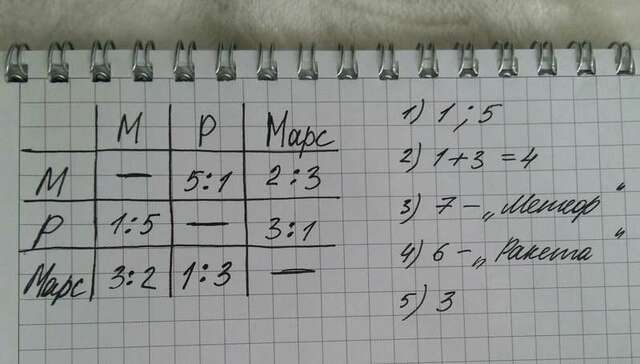 М Р Марс
М — 5:1 2:3
Р 1:5 — 3:1
Марс 3:2 1:3 —
1) 1; 5
2) 1+3 = 4
3) 7 – „Метеор“
4) 6 – „Ракета“
5) 3